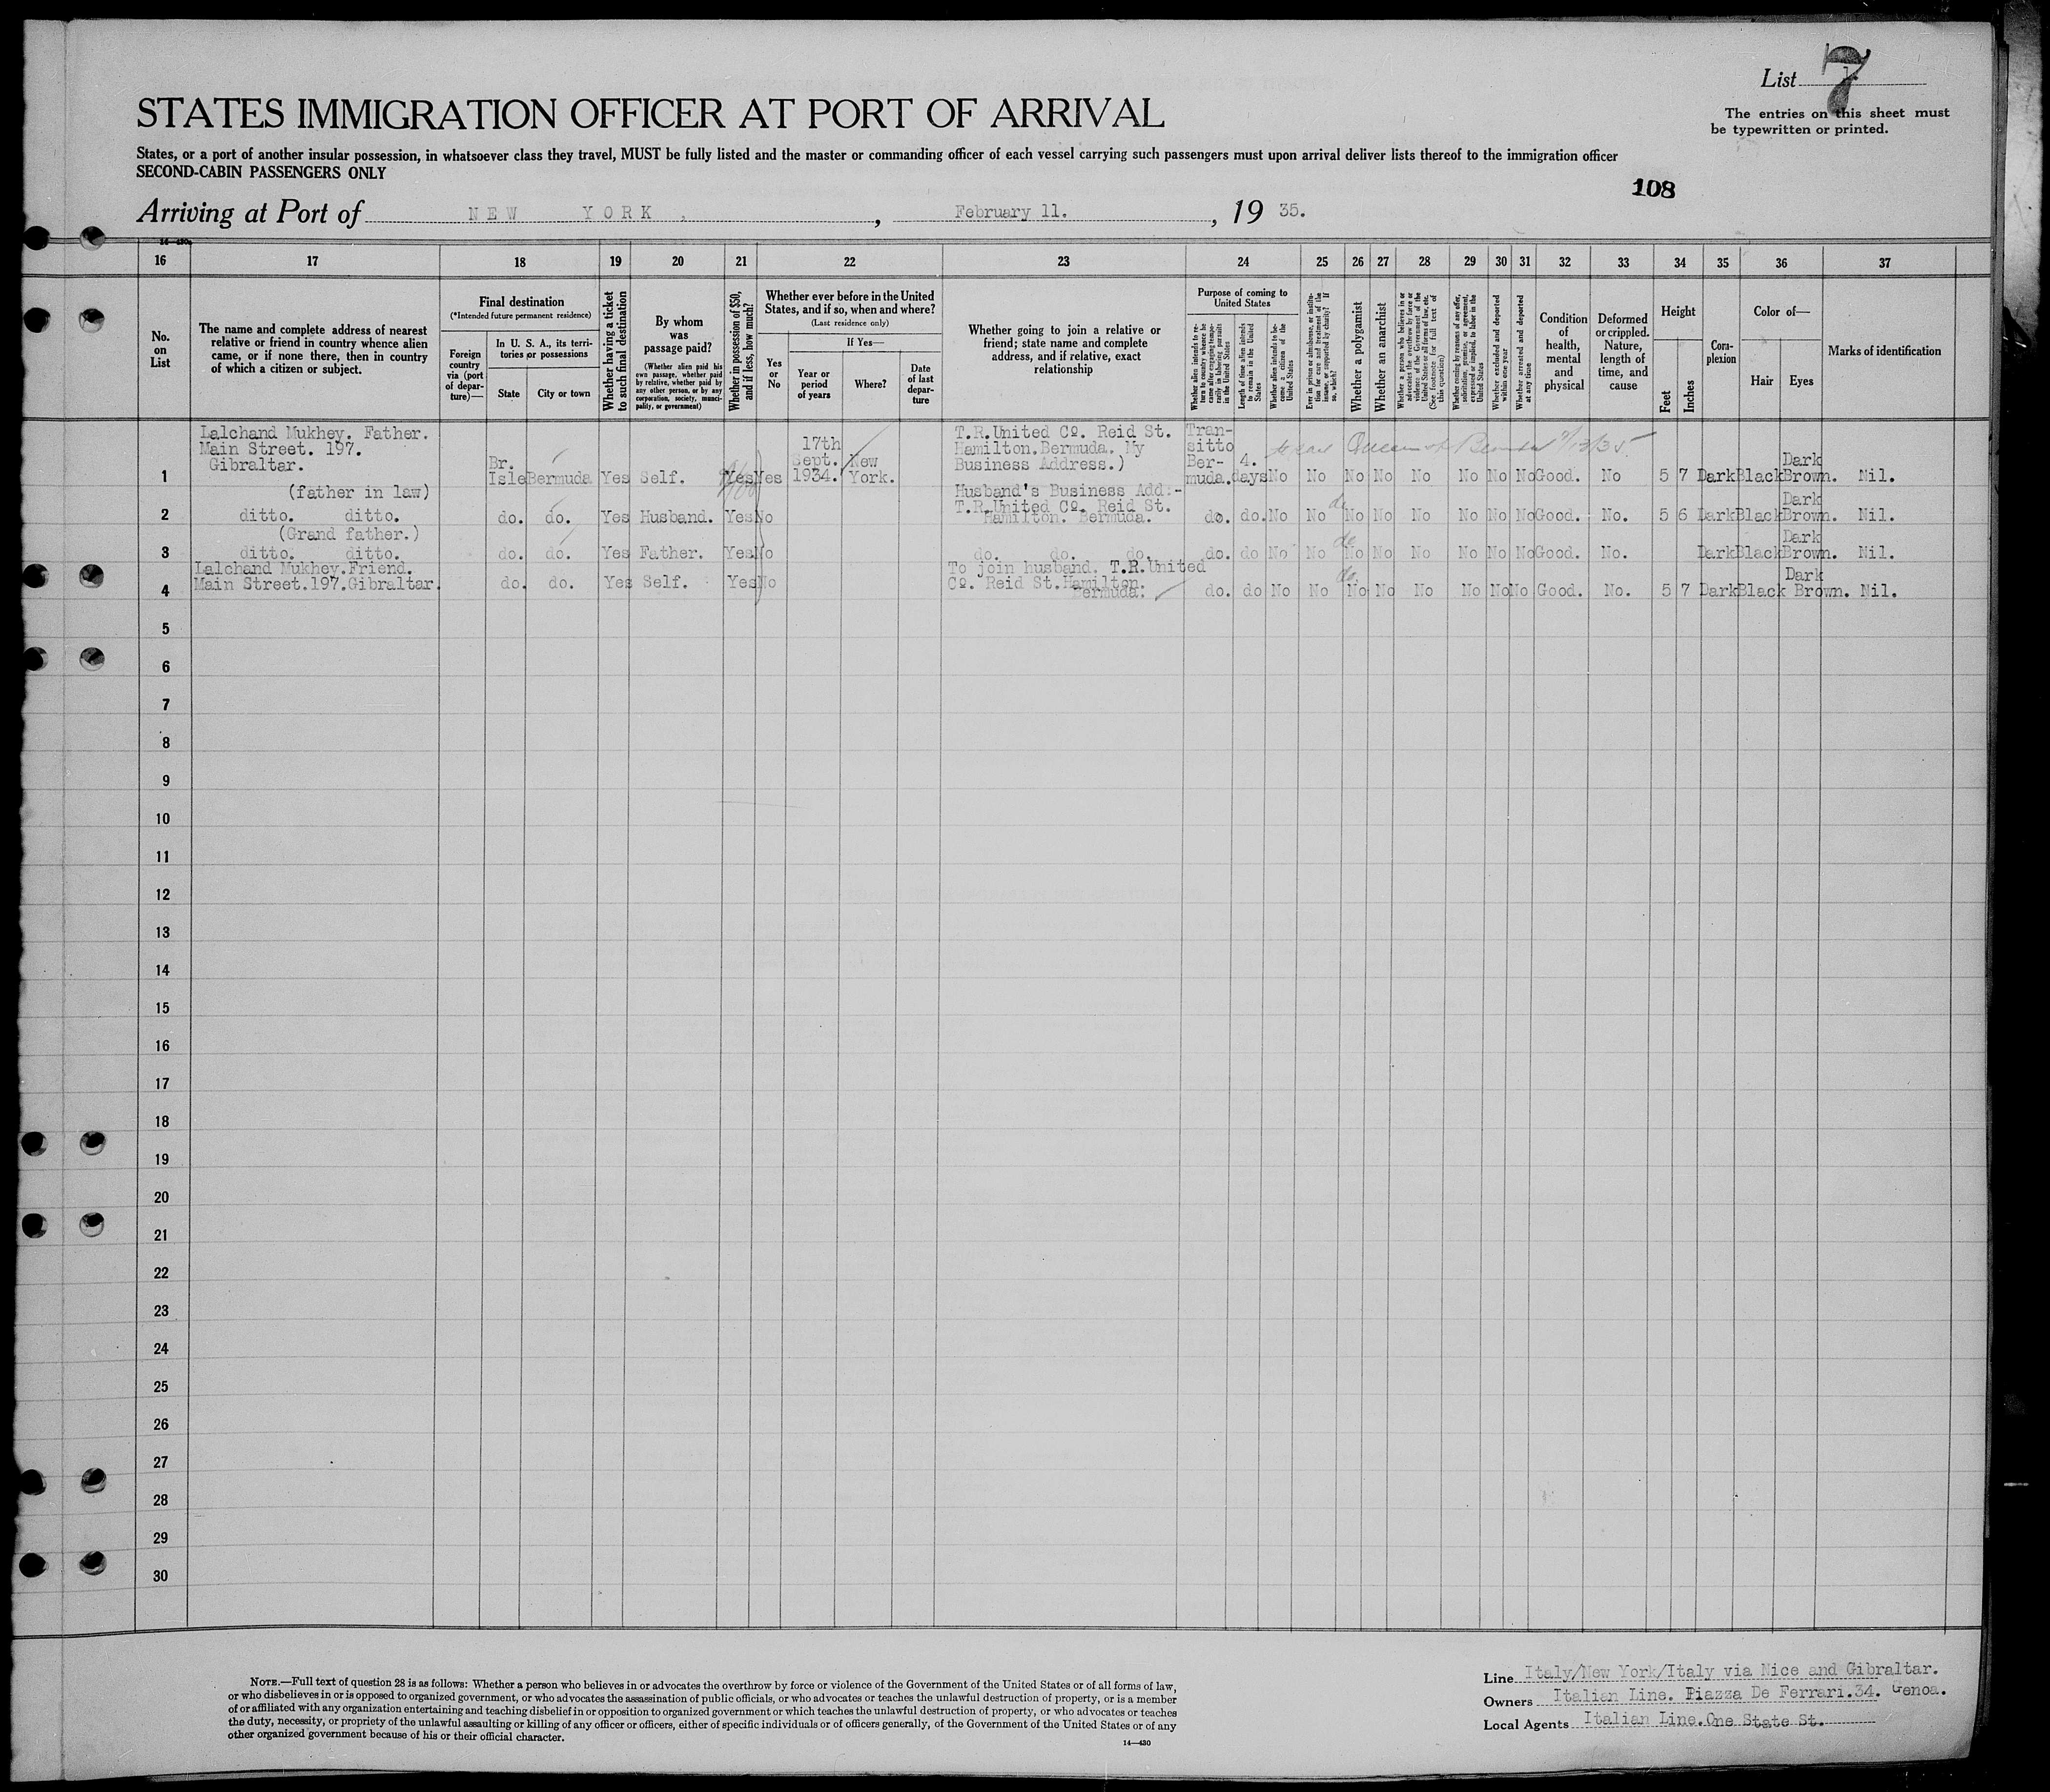 List 7
STATES IMMIGRATION OFFICER AT PORT OF ARRIVAL
The entries on this sheet must
be typewritten or printed.
States, or a port of another insular possession, in whatsoever class they travel, MUST be fully listed and the master or commanding officer of each vessel carrying such passengers must upon arrival deliver lists thereof to the immigration officer
SECOND-CABIN PASSENGERS ONLY
108
Arriving at Port of NEW YORK, , February 11. , 19 35.
16 17 18 19 20 21 22 23 24 25 26 27 28 29 30 31 32 33 34 35 36 37
No.
on
List
The name and complete address of nearest
relative or friend in country whence alien
came, or if none there, then in country
of which a citizen or subject.
Final destination
(*Intended future permanent residence)
Foreign
country
via (port
of depar-
ture)—
In U. S. A., its terri-
tories or possessions
State
City or town
Whether having a ticket
to such final destination
By whom
was
passage paid?
(Whether alien paid his
own passage, whether paid
by relative, whether paid by
any other person, or by any
corporation, society, munci-
pality, or government)
Whether in possession of $50,
and if less, how much?
Whether ever before in the United
States, and if so, when and where?
(Last residence only)
Yes
or
No
If Yes—
Year or
period
of years
Where?
Date
of last
depar-
ture
Whether going to join a relative or
friend; state name and complete
address, and if relative, exact
relationship
Purpose of coming to
United States
Whether alien intends to re-
turn to country whence he
came after engaging tempo-
rarily in laboring pursuits
in the United States
Length of time alien intends
to remain in the United
States
Whether alien intends to be-
come a citizen of the
United States
Ever in prison or almshouse, or institu-
tion for care and treatment of the
insane, or supported by charity? If
so, which?
Whether a polygamist
Whether an anarchist
Whether a person who believes in or
advocates the overthrow by force or
violence of the Government of the
United States or all forms of law, etc.
(See footnote for full text of
this question)
Whether coming by reason of any offer,
solicitation, promise, or agreement,
expressed or implied, to labor in the
United States
Whether excluded and deported
within one year
Whether arrested and deported
at any time
Condition
of
health,
mental
and
physical
Deformed
or crippled.
Nature,
length of
time, and
cause
Height
Feet
Inches
Com-
plexion
Color of—
Hair
Eyes
Marks of identification
Lalchand Mukhey. Father.
Main Street. 197.
Gibraltar.
1 Br. Isle Bermuda Yes Self. Yes Yes 17th Sept. 1934. New York.
T.R.United Co. Reid St.
Hamilton.Bermuda. My
Business Address.)
Tran-
sitto
Ber-
muda. 4. days No No No No No No No No Good. No 5 7 Dark Black Dark Brown. Nil.
2/13/35
(father in law)
2 ditto. ditto. do. do. Yes Husband. Yes No
Husband's Business Add:-
T.R.United Co. Reid St.
Hamilton. Bermuda.
do. do. No No No No No No No No Good. No. 5 6 Dark Black Dark Brown. Nil.
do
(Grand father.)
3 ditto. ditto. do. do. Yes Father. Yes No do. do. do. do. do No No No No No No No No Good. No. Dark Black Dark Brown. Nil.
do
Lalchand Mukhey.Friend.
4 Main Street.197.Gibraltar. do. do. Yes Self. Yes No
To join husband. T.R.United
Co. Reid St.Hamilton.
Bermuda.
do. do No No No No No No No No Good. No. 5 7 Dark Black Dark Brown. Nil.
do
5
6
7
8
9
10
11
12
13
14
15
16
17
18
19
20
21
22
23
24
25
26
27
28
29
30
NOTE.—Full text of question 28 is as follows: Whether a person who believes in or advocates the overthrow by force or violence of the Government of the United States or of all forms of law,
or who disbelieves in or is opposed to organized government, or who advocates the assassination of public officials, or who advocates or teaches the unlawful destruction of property, or is a member
of or affiliated with any organization entertaining and teaching disbelief in or opposition to organized government or which teaches the unlawful destruction of property, or who advocates or teaches
the duty, necessity, or propriety of the unlawful assaulting or killing of any officer or officers, either of specific individuals or of officers generally, of the Government of the United States or of any
other organized government because of his or their official character.
14—430
Line Italy/New York/Italy via Nice and Gibraltar.
Owners Italian Line. Piazza De Ferrari.34. Genoa.
Local Agents Italian Line.One State St.